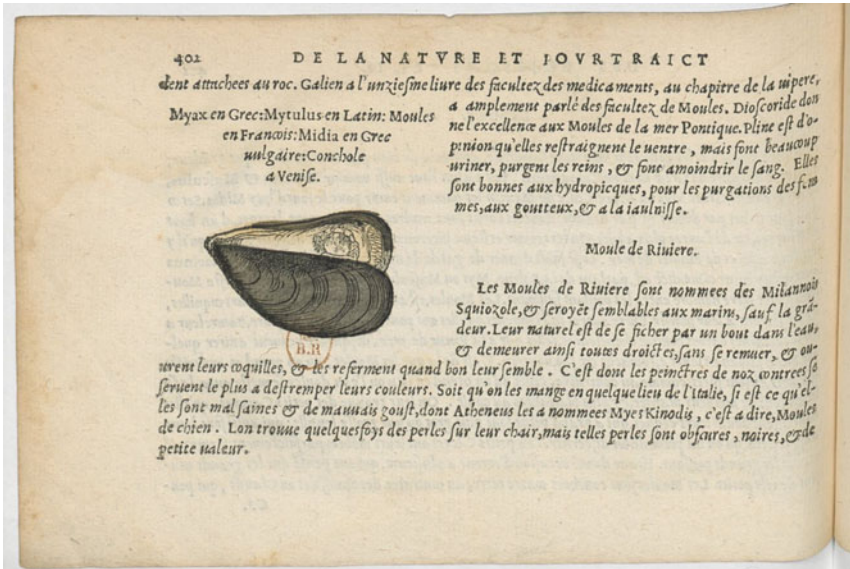 402 DE LA NATVRE ET POVRTRAICT
dent attachees au roc. Galien a l'unziesme liure des facultez des medicaments, au chapitre de la uipere,
a amplement parlé des facultez de Moules. Dioscoride don
Myax en Grec:Mytulus en Latin: Moules
en Francois:Midia en Grec
uulgaire:Conchole
a Venise.
ne l'excellence aux Moules de la mer Pontique. Pline est d'o-
pinion qu'elles restraignent le uentre, mais font beaucoup
uriner, purgent les reins, & font amoindrir le sang. Elles
sont bonnes aux hydropicques, pour les purgations des fem
mes, aux goutteux, & a la iaulnisse.
Moule de Riuiere.
Les Moules de Riuiere sont nommees des Milannois
Squiozole, & seroyẽt semblables aux marins, sauf la grã-
deur. Leur naturel est de se ficher par un bout dans l'eau,
& demeurer ainsi toutes droictes, sans se remuer, & ou-
urent leurs coquilles, & les referment quand bon leur semble. C'est dont les peinctres de noz contrees se
seruent le plus a destremper leurs couleurs. Soit qu'on les mange en quelque lieu de l'Italie, si est ce qu'el-
les sont mal saines & de mauuais goust, dont Atheneus les a nommees Myes Kinodis, c'est a dire, Moules
de chien. Lon trouue quelquesfoys des perles sur leur chair, mais telles perles sont obscures, noires, & de
petite ualeur.
B.R